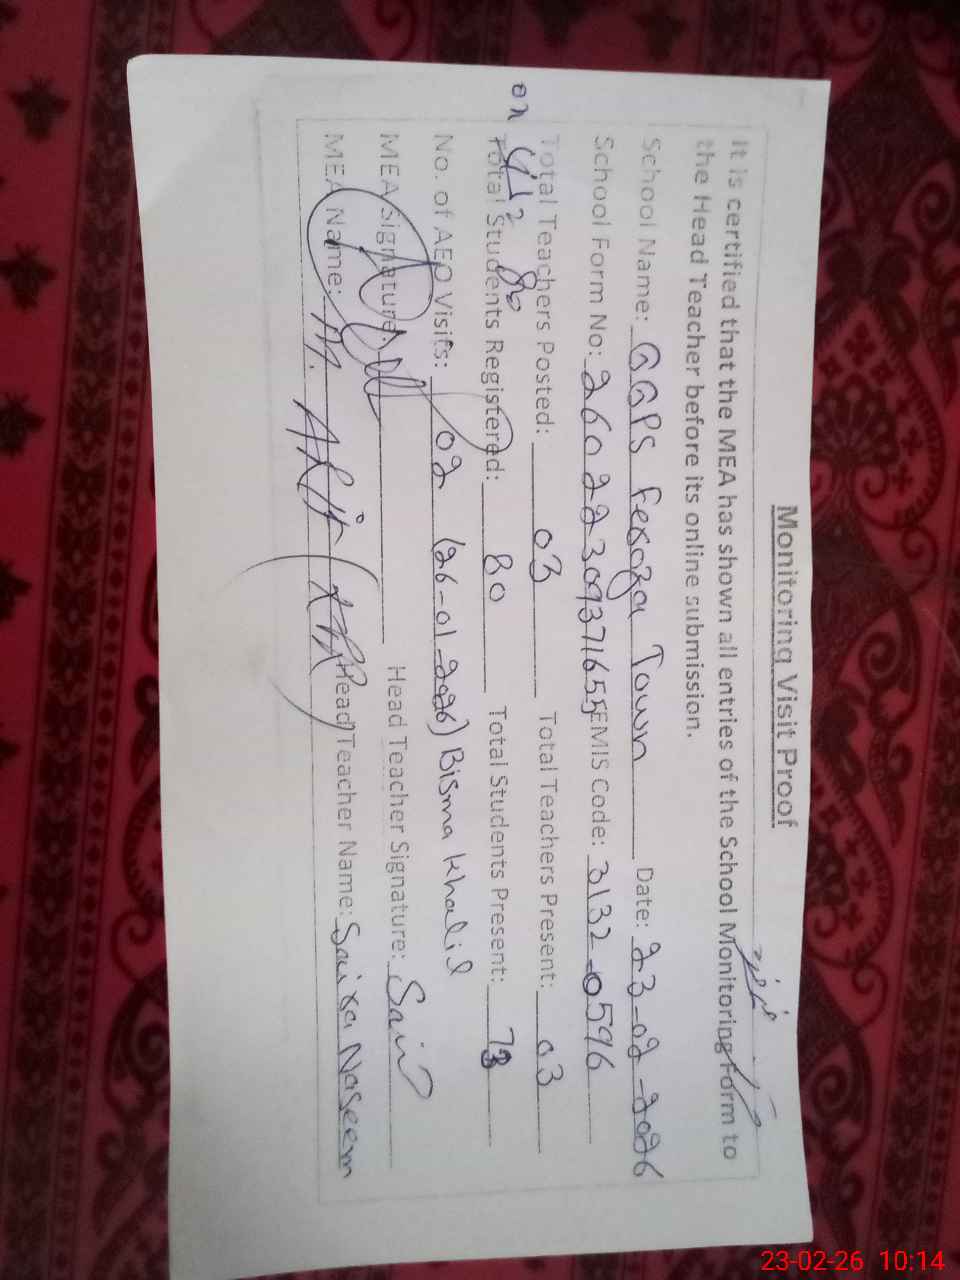 Monitoring Visit Proof
It is certified that the MEA has shown all entries of the School Monitoring Form to
the Head Teacher before its online submission.
School Name: GGPS Feroza Town Date: 23-02-2026
School Form No: 26022309371655 EMIS Code: 3132-0596
Total Teachers Posted: 03 Total Teachers Present: 03
Total Students Registered: 80 Total Students Present: 73
No. of AEO Visits: 02 (26-01-2026) Bisma Khalil
MEA Signature: Head Teacher Signature: Sair
MEA Name: M. Head Teacher Name: Saira Naseem
23-02-26 10:14